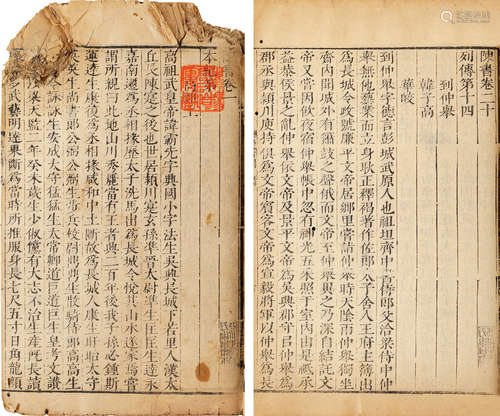 書卷一
本紀第一
高祖武皇帝諱霸先字興國小字法生吳興長城下若里人漢太
丘長陳寔之後也世居潁川寔玄孫準晉太尉準生匡匡生達永
嘉南遷爲丞相掾歷太子洗馬出爲長城令悅其山水遂家焉嘗
謂所親曰此地山川秀麗當有王者興二百年後我子孫必鍾斯
運達生康復爲丞相掾咸和中土斷故爲長城人康生盱眙太守
英英生尚書郎公弼公弼生步兵校尉鼎鼎生散騎侍郎高高生
詠生安成太守猛猛生太常卿道巨道巨生皇考文讚
梁天監二年癸未歲生少俶儻有大志不治生產既長讀
武藝明達果斷爲當時所推服身長七尺五寸日角龍顏
陳書卷二十
列傳第十四
到仲舉
韓子高
華皎
到仲舉字德言彭城武原人也祖坦齊中書侍郎父洽梁侍中仲
舉無他藝業而立身耿正釋褐著作佐郎太子舍人王府主簿出
爲長城令政號廉平文帝居鄉里嘗詣仲舉時天陰雨仲舉獨坐
齋內聞城外有簫鼓之聲俄而文帝至仲舉異之乃深自結託文
帝又嘗因飲夜宿仲舉帳中忽有神光五采照于室內由是祗承
益恭侯景之亂仲舉依文帝及景平文帝爲吳興郡守以仲舉爲
郡丞與潁川庾持俱爲文帝賓客文帝爲宣毅將軍以仲舉爲長